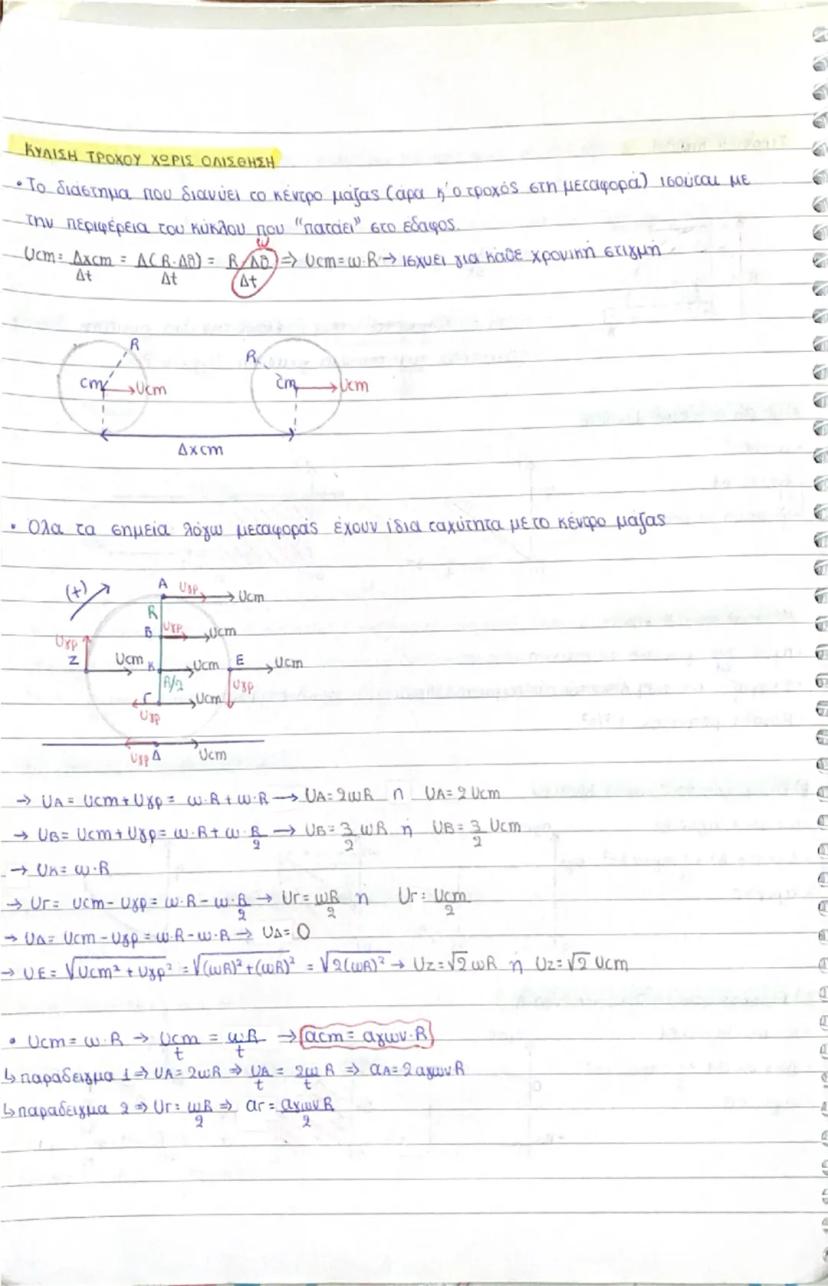 ΚΥΛΙΣΗ ΤΡΟΧΟΥ ΧΩΡΙΣ ΟΛΙΣΘΗΣΗ
• Το διάστημα που διανύει το κέντρο μάζας (άρα κ' ο τροχός στη μεταφορά) ισούται με
την περιφέρεια του κύκλου που "πατάει" στο έδαφος.
ω
Ucm = Δxcm/Δt = Δ(R·Δθ)/Δt = R·Δθ/Δt ⇒ Ucm = ω·R → ισχύει για κάθε χρονική στιγμή
R R
cm Ucm cm Ucm
Δxcm
• Όλα τα σημεία λόγω μεταφοράς έχουν ίδια ταχύτητα με το κέντρο μάζας
(+) A Uγρ Ucm
R
Uγρ B Uγρ Ucm
Z Ucm K Ucm E Ucm
R/2 Uγρ
Γ Ucm
Uγρ
Uγρ Δ Ucm
→ UA = Ucm + Uγρ = ω·R + ω·R → UA = 2ωR ή UA = 2Ucm
→ UB = Ucm + Uγρ = ω·R + ω·R/2 → UB = 3/2 ωR ή UB = 3/2 Ucm
→ UK = ω·R
→ UΓ = Ucm - Uγρ = ω·R - ω·R/2 → UΓ = ωR/2 ή UΓ = Ucm/2
→ UΔ = Ucm - Uγρ = ω·R - ω·R → UΔ = 0
→ UE = √(Ucm² + Uγρ²) = √((ωR)² + (ωR)²) = √(2(ωR)²) → UZ = √2 ωR ή UZ = √2 Ucm
• Ucm = ω·R → Ucm/t = ωR/t → acm = aγων·R
↳ παράδειγμα 1 ⇒ UA = 2ωR ⇒ UA/t = 2ω/t R ⇒ aA = 2aγωνR
↳ παράδειγμα 2 ⇒ UΓ = ωR/2 ⇒ aΓ = aγωνR/2